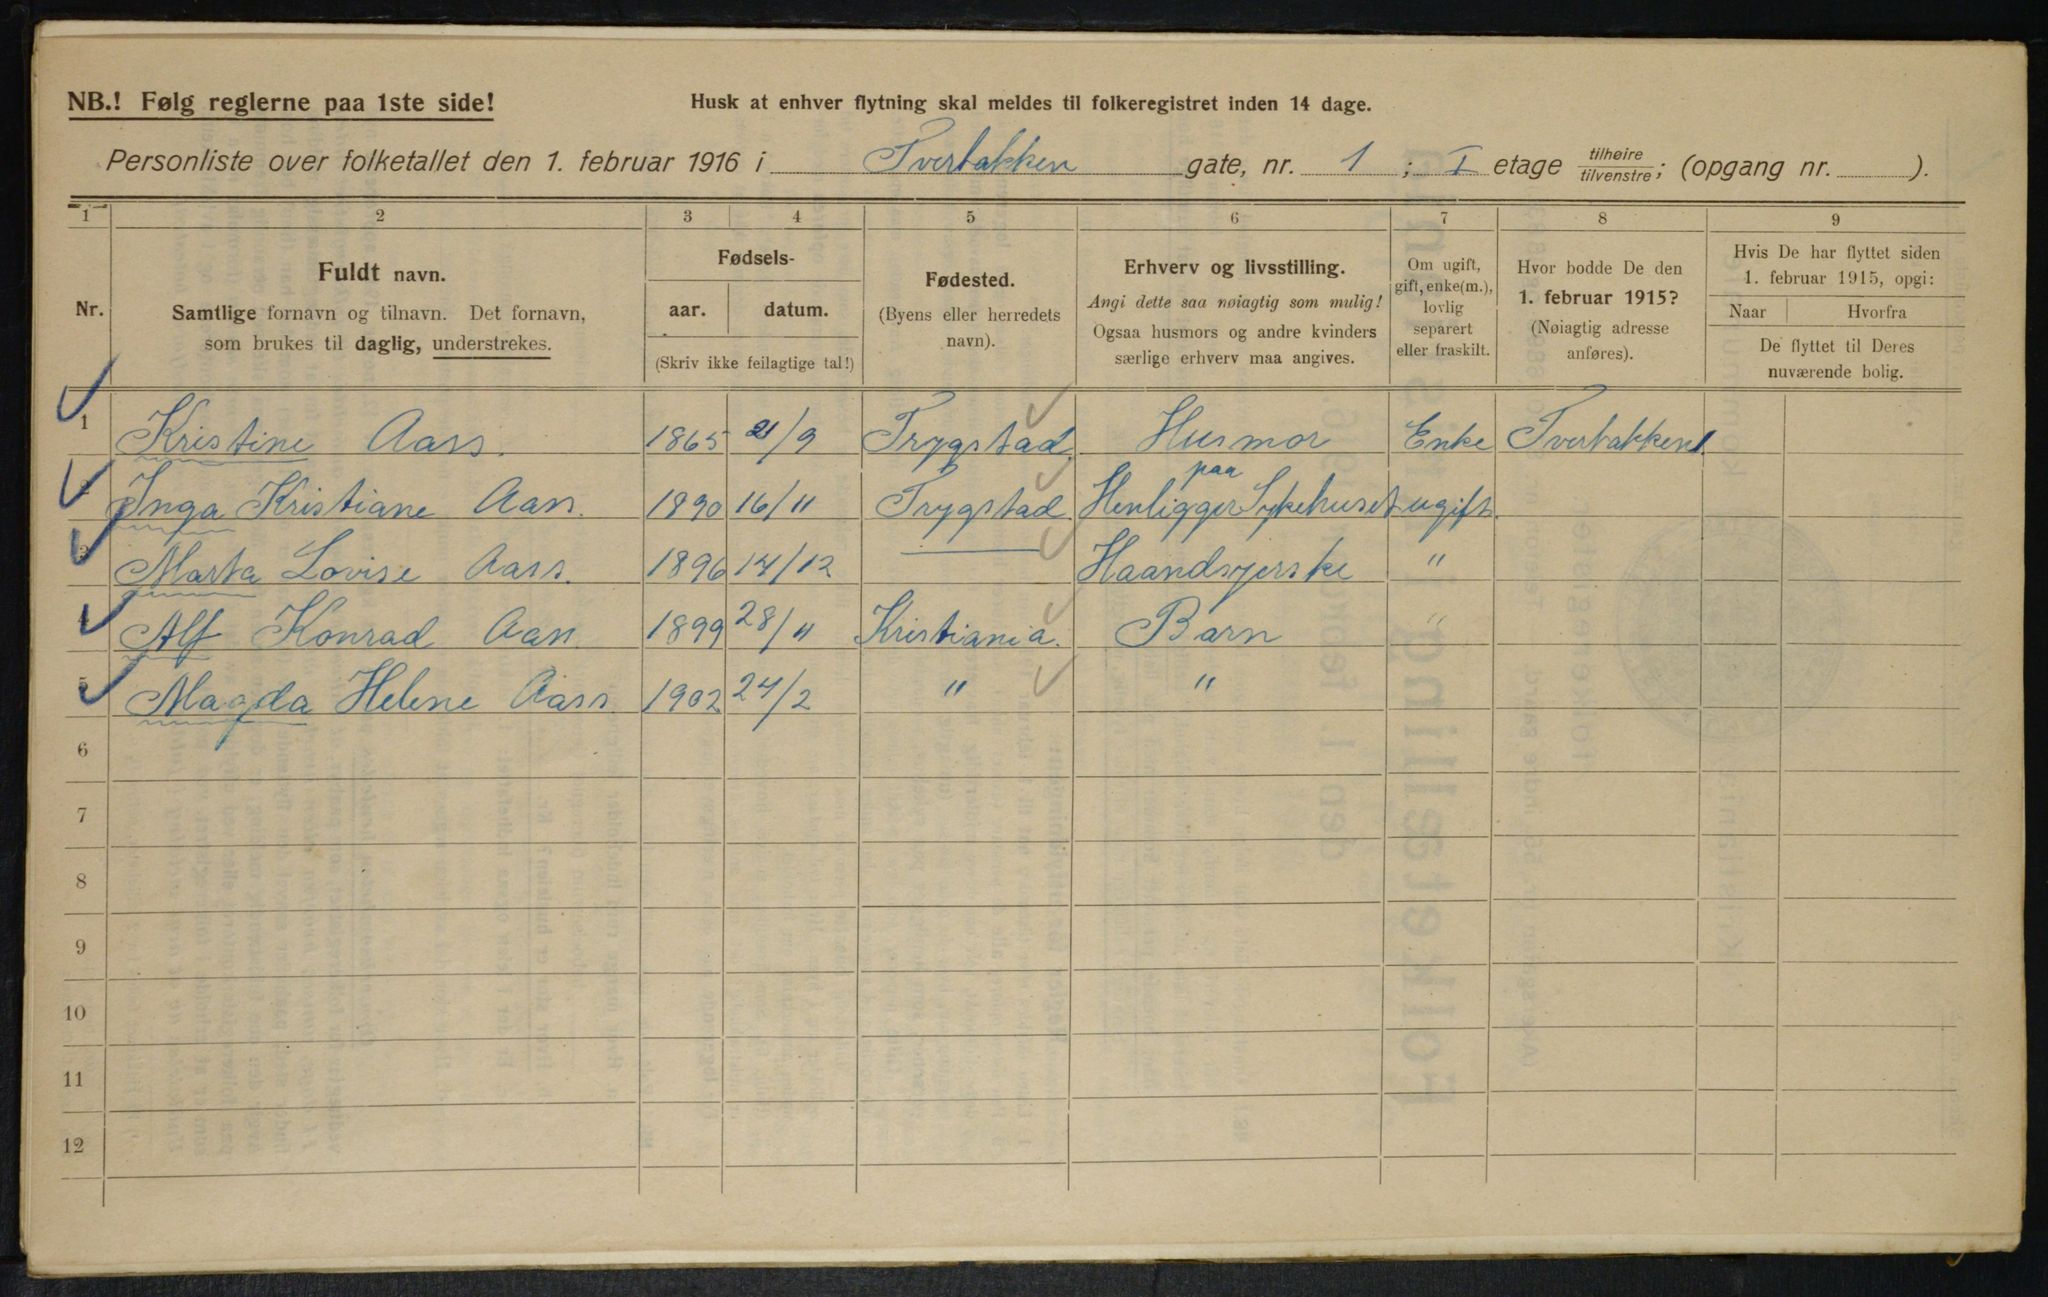 NB.! Følg reglerne paa 1ste side!
Husk at enhver flytning skal meldes til folkeregistret inden 14 dage.
Personliste over folketallet den 1. februar 1916 i Tverbakken gate, nr. 1 ; I etage tilhøire tilvenstre; (opgang nr. ).
1 2 3 4 5 6 7 8 9
Nr.
Fuldt navn.
Samtlige fornavn og tilnavn. Det fornavn,
som brukes til daglig, understrekes.
Fødsels-
aar. datum.
(Skriv ikke feilagtige tal!)
Fødested.
(Byens eller herredets
navn).
Erhverv og livsstilling.
Angi dette saa nøiagtig som mulig!
Ogsaa husmors og andre kvinders
særlige erhverv maa angives.
Om ugift,
gift, enke(m.),
lovlig
separert
eller fraskilt.
Hvor bodde De den
1. februar 1915?
(Nøiagtig adresse
anføres).
Hvis De har flyttet siden
1. februar 1915, opgi:
Naar Hvorfra
De flyttet til Deres
nuværende bolig.
1 Kristine Aass. 1865 21/9 Trygstad. Husmor Enke Tverbakken 1.
2 Inga Kristiane Aass. 1890 16/11 Trygstad. Henligger paa Sykehuset ugift.
3 Marta Lovise Aass. 1896 14/12 Haandsyerske "
4 Alf Konrad Aass 1899 28/11 Kristiania. Barn "
5 Magda Helene Aass 1902 24/2 " "
6
7
8
9
10
11
12